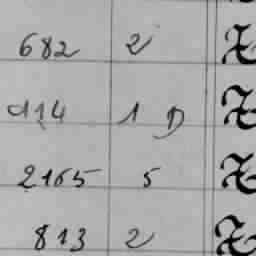 682 2
114 1 D
2165 5
813 2